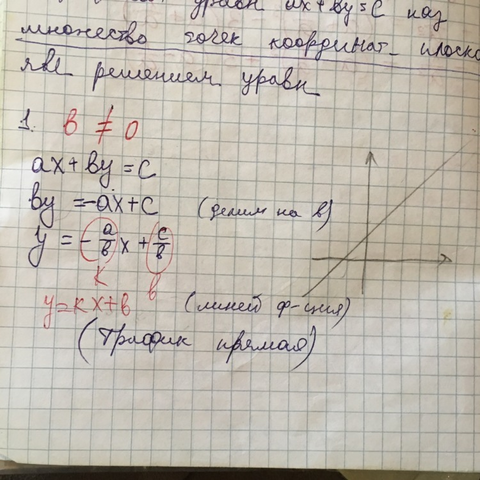 уравн ax+by=c наз
множество точек координат плоско
явл решением уравн
1. в ≠ 0
ax+by=c
by =-ax+c (делим на в)
y = -a/в x + c/в
к в
y=кx+в (линей ф-ция)
(График прямая)